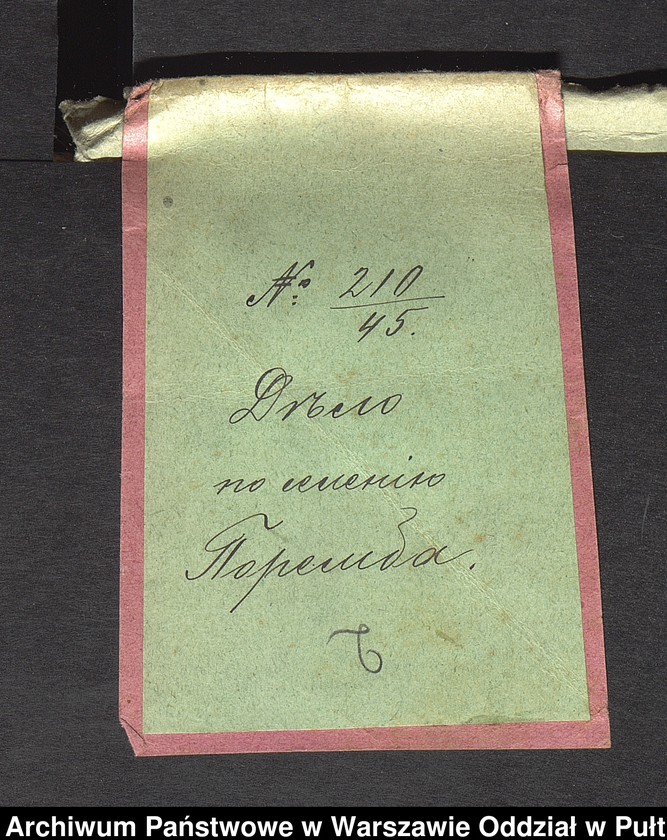 № 210
45.
Дѣло
по имѣнію
Поремба.
Archiwum Państwowe w Warszawie Oddział w Pułt